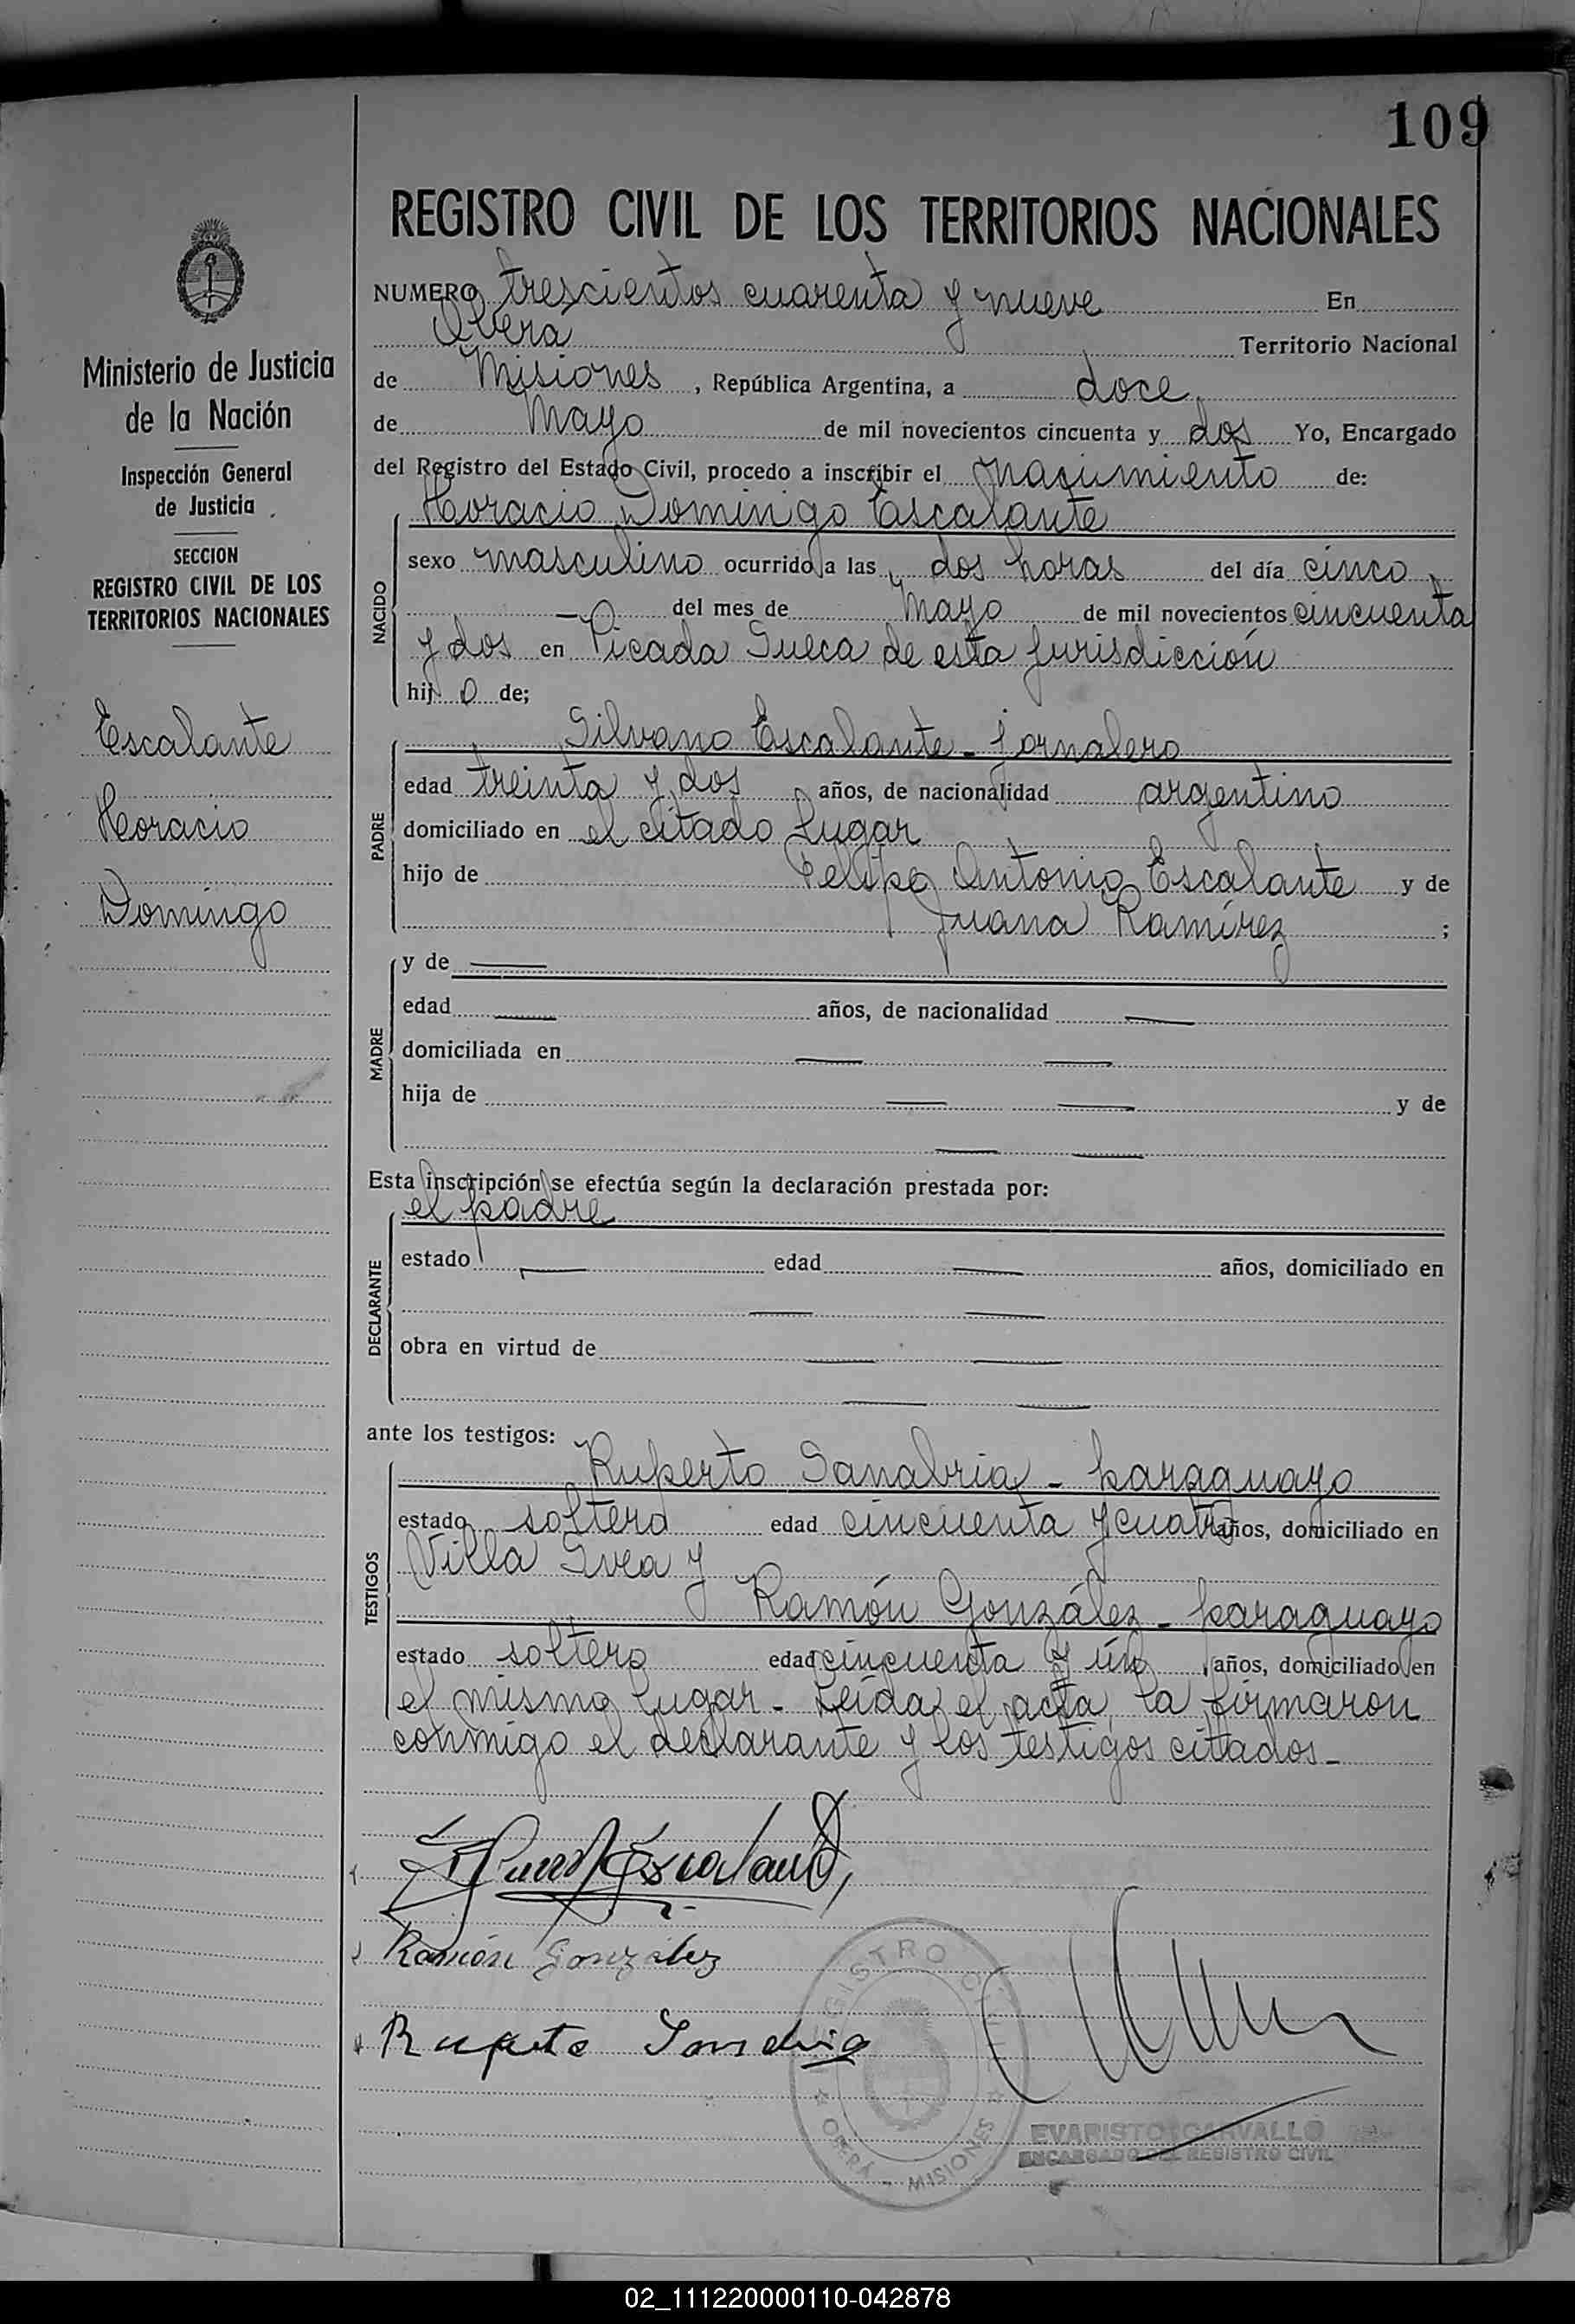 109
REGISTRO CIVIL DE LOS TERRITORIOS NACIONALES
NUMERO trescientos cuarenta y nueve En
Oberá Territorio Nacional
de Misiones, República Argentina, a doce
de Mayo de mil novecientos cincuenta y dos Yo, Encargado
del Registro del Estado Civil, procedo a inscribir el nacimiento de:
NACIDO
Horacio Domingo Escalante
sexo masculino ocurrido a las dos horas del día cinco
— del mes de Mayo de mil novecientos cincuenta
y dos en Picada Sueca de esta jurisdicción
hijo de;
PADRE
Silvano Escalante - jornalero
edad treinta y dos años, de nacionalidad argentino
domiciliado en el citado lugar
hijo de Felipe Antonio Escalante y de
Juana Ramírez ;
MADRE
y de —
edad — años, de nacionalidad —
domiciliada en — —
hija de — — y de
— —
Esta inscripción se efectúa según la declaración prestada por:
DECLARANTE
el padre
estado — edad — años, domiciliado en
— —
obra en virtud de — —
— —
ante los testigos:
TESTIGOS
Ruperto Sanabria - paraguayo
estado soltero edad cincuenta y cuatro años, domiciliado en
Villa Svea y
Ramón González - paraguayo
estado soltero edad cincuenta y ún años, domiciliado en
el mismo lugar - Leída el acta, la firmaron
conmigo el declarante y los testigos citados -
Escalante
Ramón González
Ruperto Sanabria
REGISTRO CIVIL
OBERÁ - MISIONES
EVARISTO CARVALLO
ENCARGADO DEL REGISTRO CIVIL
Ministerio de Justicia
de la Nación
Inspección General
de Justicia
SECCION
REGISTRO CIVIL DE LOS
TERRITORIOS NACIONALES
Escalante
Horacio
Domingo
02_111220000110-042878